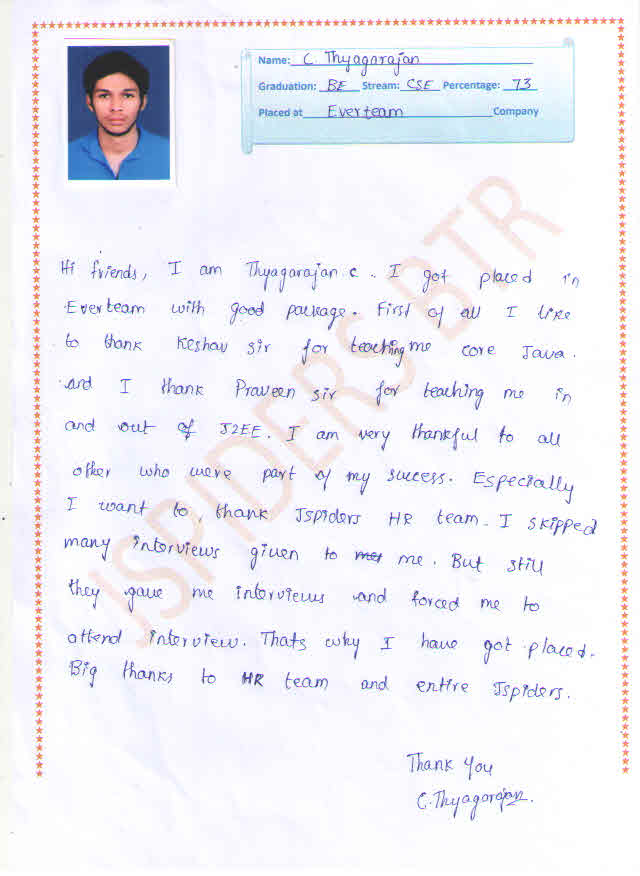 Name: C Thyagarajan
Graduation: BE Stream: CSE Percentage: 73
Placed at Everteam Company
JSPIDERS BTR
Hi friends, I am Thyagarajan c. I got placed in
Everteam with good package. First of all I like
to thank Keshav sir for teaching me core Java.
and I thank Praveen sir for teaching me in
and out of J2EE. I am very thankful to all
other who were part of my success. Especially
I want to thank Jspiders HR team. I skipped
many interviews given to me. But still
they gave me interviews and forced me to
attend interview. Thats why I have got placed.
Big thanks to HR team and entire Jspiders.
Thank You
C.Thyagarajan.